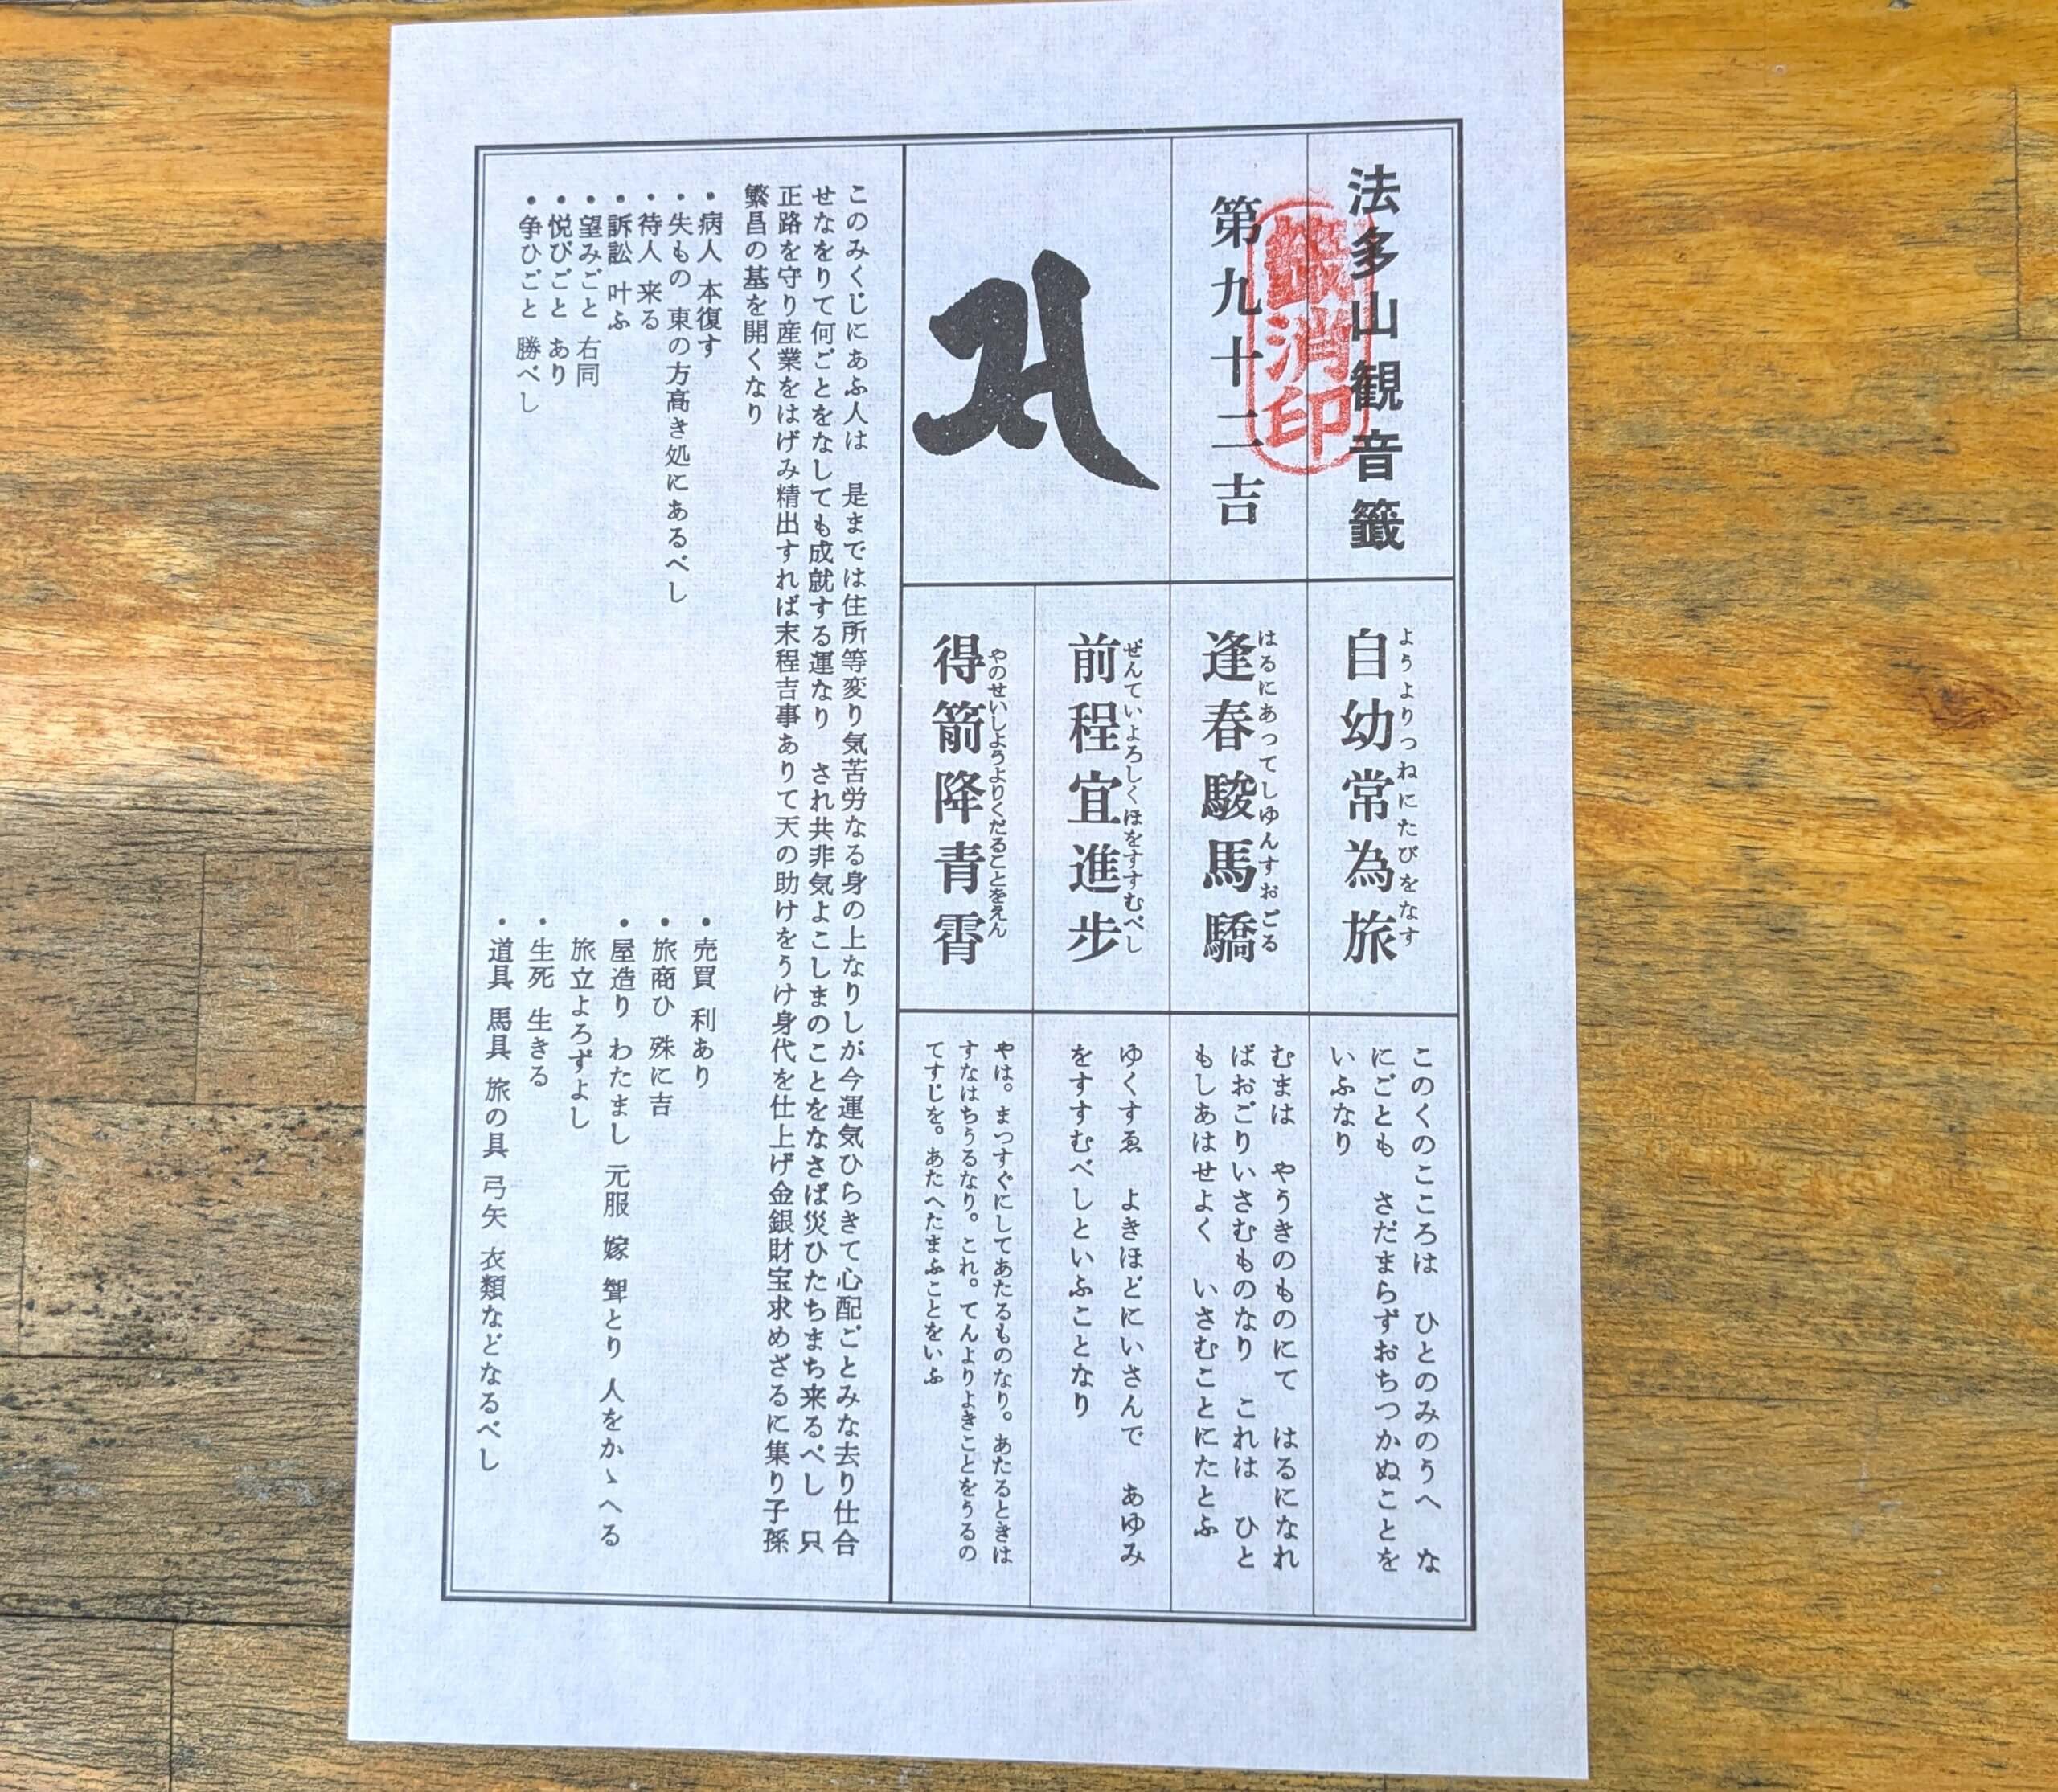 法多山観音籤
籤消印
第九十二吉
自幼常為旅
ようよりつねにたびをなす
逢春駿馬驕
はるにあってしゆんすおごる
前程宜進歩
ぜんていよろしくほをすすむべし
得箭降青霄
やのせいしようよりくだることをえん
このくのこころは　ひとのみのうへ　な
にごとも　さだまらずおちつかぬことを
いふなり
むまは　やうきのものにて　はるになれ
ばおごりいさむものなり　これは　ひと
もしあはせよく　いさむことにたとふ
ゆくすゑ　よきほどにいさんで　あゆみ
をすすむべしといふことなり
やは。まつすぐにしてあたるものなり。あたるときは
すなはちうるなり。これ。てんよりよきことをうるの
てすじを。あたへたまふことをいふ
このみくじにあふ人は　是までは住所等変り気苦労なる身の上なりしが今運気ひらきて心配ごとみな去り仕合
せなをりて何ごとをなしても成就する運なり　され共非気よこしまのことをなさば災ひたちまち来るべし　只
正路を守り産業をはげみ精出すれば末程吉事ありて天の助けをうけ身代を仕上げ金銀財宝求めざるに集り子孫
繁昌の基を開くなり
・病人　本復す
・失もの　東の方高き処にあるべし
・待人　来る
・訴訟　叶ふ
・望みごと　右同
・悦びごと　あり
・争ひごと　勝べし
・売買　利あり
・旅商ひ　殊に吉
・屋造り　わたまし　元服　嫁　聟とり　人をかゝへる
旅立よろずよし
・生死　生きる
・道具　馬具　旅の具　弓矢　衣類などなるべし